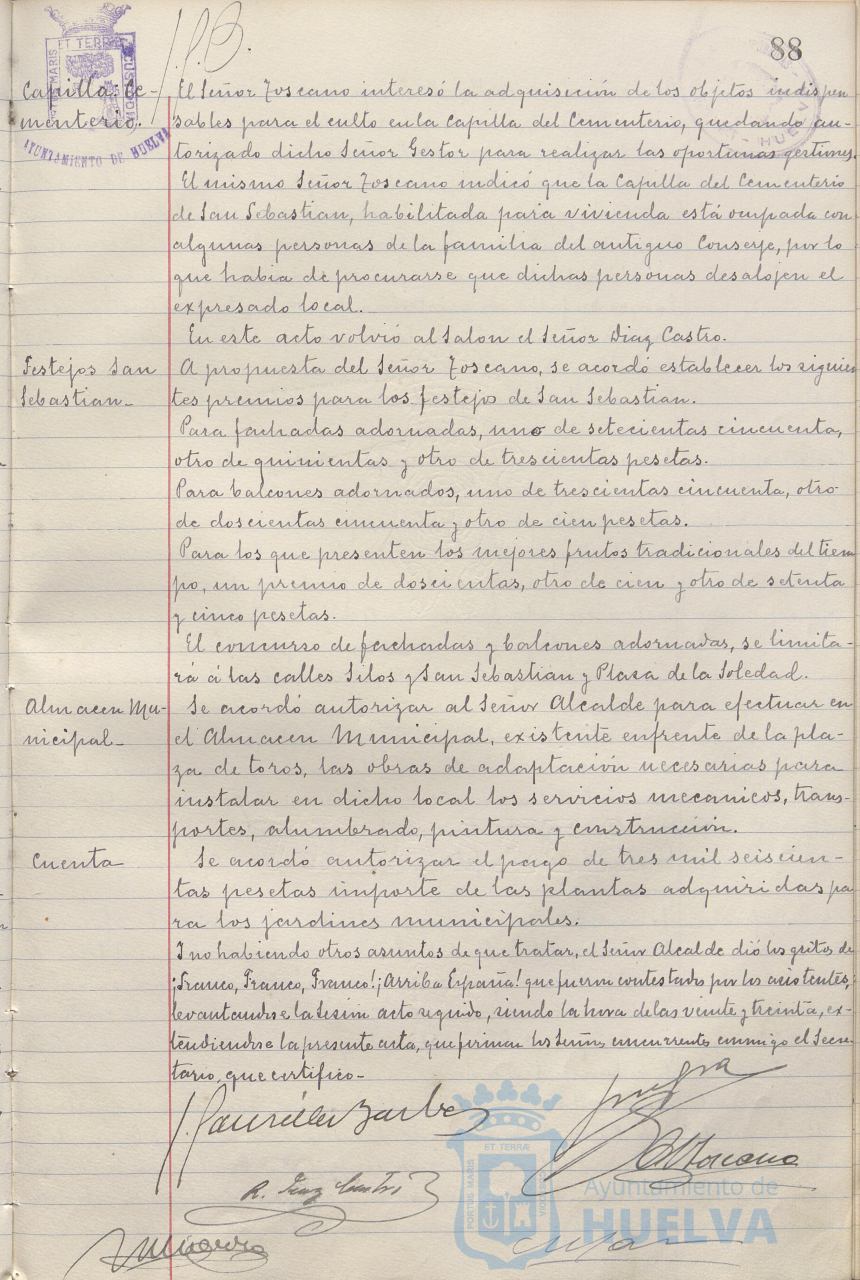 88
Capilla. Ce-
menterio.
AYUNTAMIENTO DE HUELVA
El Señor Toscano interesó la adquisición de los objetos indispen
sables para el culto en la Capilla del Cementerio, quedando au-
torizado dicho Señor Gestor para realizar las oportunas gestiones.
El mismo Señor Toscano indicó que la Capilla del Cementerio
de San Sebastian, habilitada para vivienda está ocupada con
algunas personas de la familia del antiguo Conserje, por lo
que habia de procurarse que dichas personas desalojen el
expresado local.
En este acto volvió al Salon el Señor Diaz Castro.
Festejos San
Sebastian_
A propuesta del Señor Toscano, se acordó establecer los siguien
tes premios para los festejos de San Sebastian.
Para fachadas adornadas, uno de setecientas cincuenta,
otro de quinientas y otro de trescientas pesetas.
Para balcones adornados, uno de trescientas cincuenta, otro
de doscientas cincuenta y otro de cien pesetas.
Para los que presenten los mejores frutos tradicionales del tiem
po, un premio de doscientas, otro de cien y otro de setenta
y cinco pesetas.
El concurso de fachadas y balcones adornadas, se limita-
rá á las calles Silos y San Sebastian y Plaza de la Soledad.
Almacen Mu-
nicipal_
Se acordó autorizar al Señor Alcalde para efectuar en
el Almacen Municipal, existente enfrente de la pla-
za de toros, las obras de adaptación necesarias para
instalar en dicho local los servicios mecanicos, trans-
portes, alumbrado, pintura y construcción.
Cuenta
Se acordó autorizar el pago de tres mil seiscien-
tas pesetas importe de las plantas adquiridas pa
ra los jardines municipales.
Y no habiendo otros asuntos de que tratar, el Señor Alcalde dió los gritos de
¡Franco, Franco, Franco! ¡Arriba España! que fueron contestados por los asistentes,
levantandose la sesion acto seguido, siendo la hora de las veinte y treinta, ex-
tendiendose la presente acta, que firman los Señores concurrentes conmigo el Secre-
tario, que certifico-
R. Diaz Castro
Toscano
ET TERRÆ
PORTUS MARIS
Ayuntamiento de
HUELVA